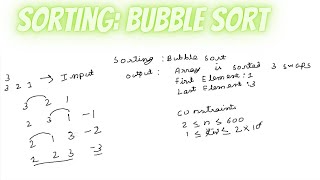 SORTING: BUBBLE SORT
Sorting : Bubble Sort
3
3 2 1 → Input
output : Array is sorted 3 swaps
First Element : 1
Last Element : 3
3 2 1
2 3 1 -1
2 1 3 -2
1 2 3 -3
constraints
2 ≤ n ≤ 600